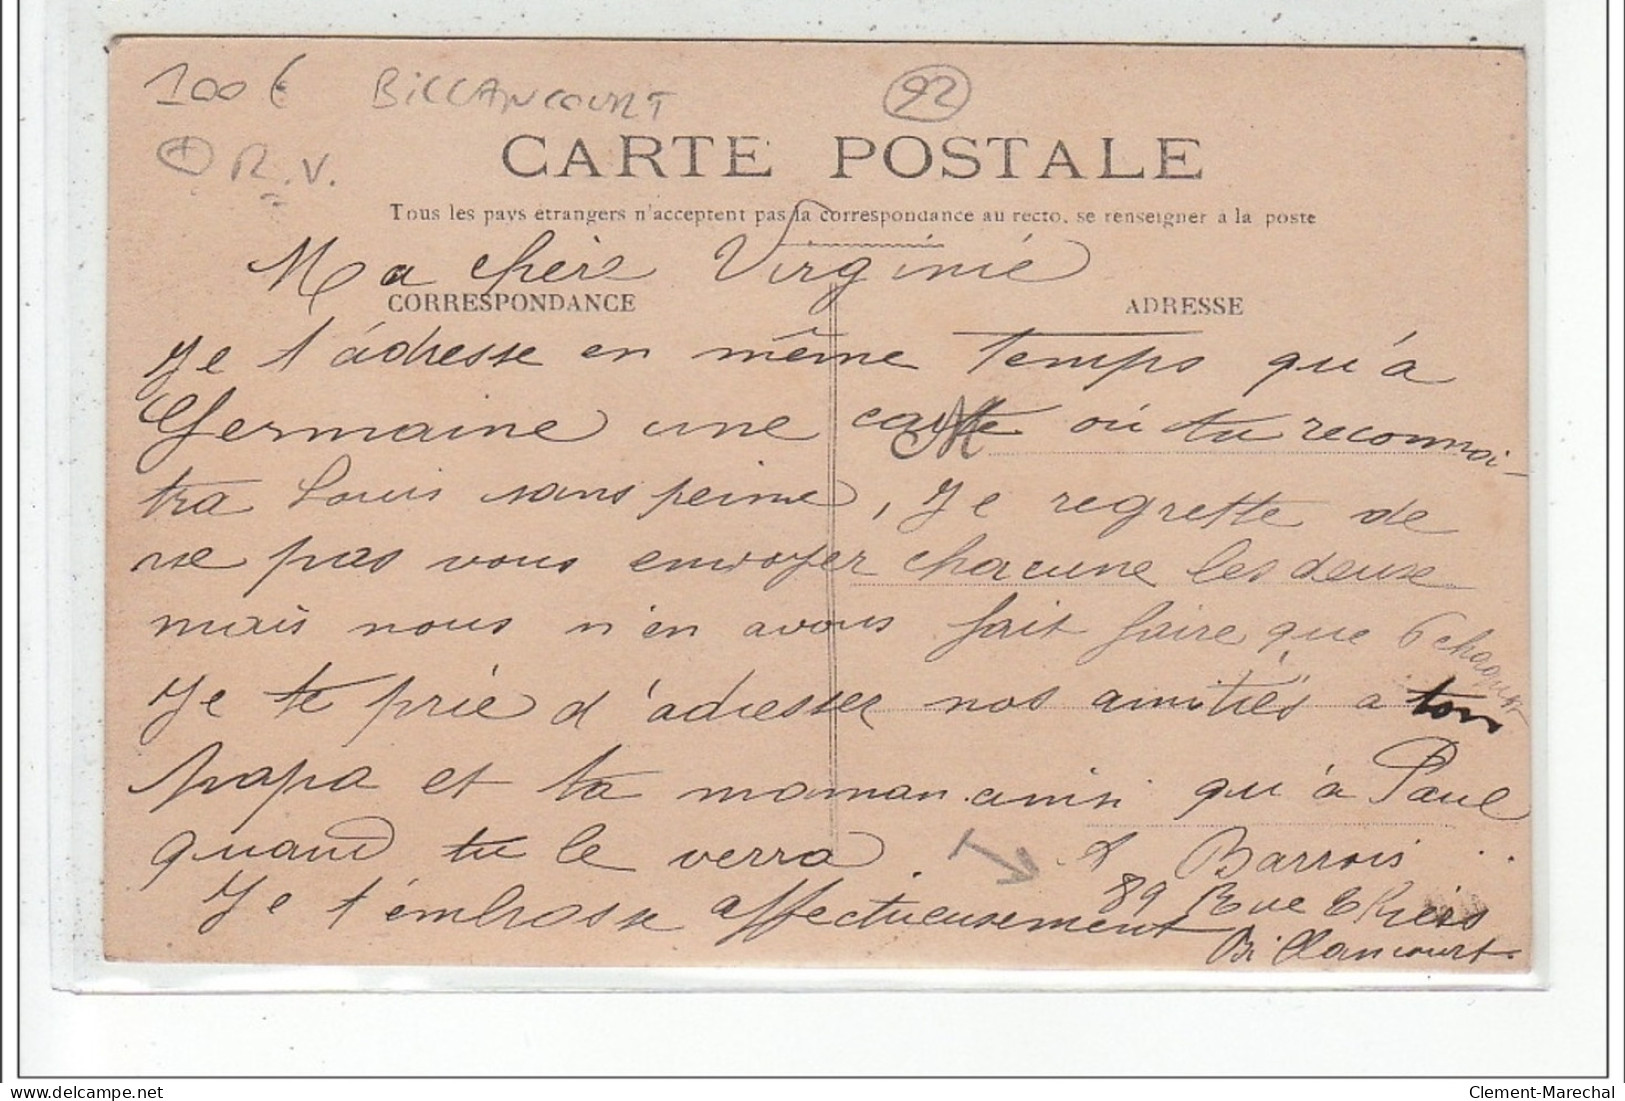 100€ BILLANCOURT 92
R.V.
CARTE POSTALE
Tous les pays étrangers n'acceptent pas la correspondance au recto, se renseigner à la poste
Ma chère Virginie
CORRESPONDANCE ADRESSE
Je t'adresse en même temps qu'à
Germaine une carte où tu reconnoi-
tra Louis sans peine, Je regrette de
ne pas vous envoyer chacune les deux
mais nous n'en avons fait faire que 6 chaque
Je te prie d'adresser nos amitiés a ton
papa et ta maman ainsi qu'à Paul
quand tu le verra
Barrois
Je t'embrasse affectueusement 89 Rue Thiers
Billancourt
Clement-Marechal